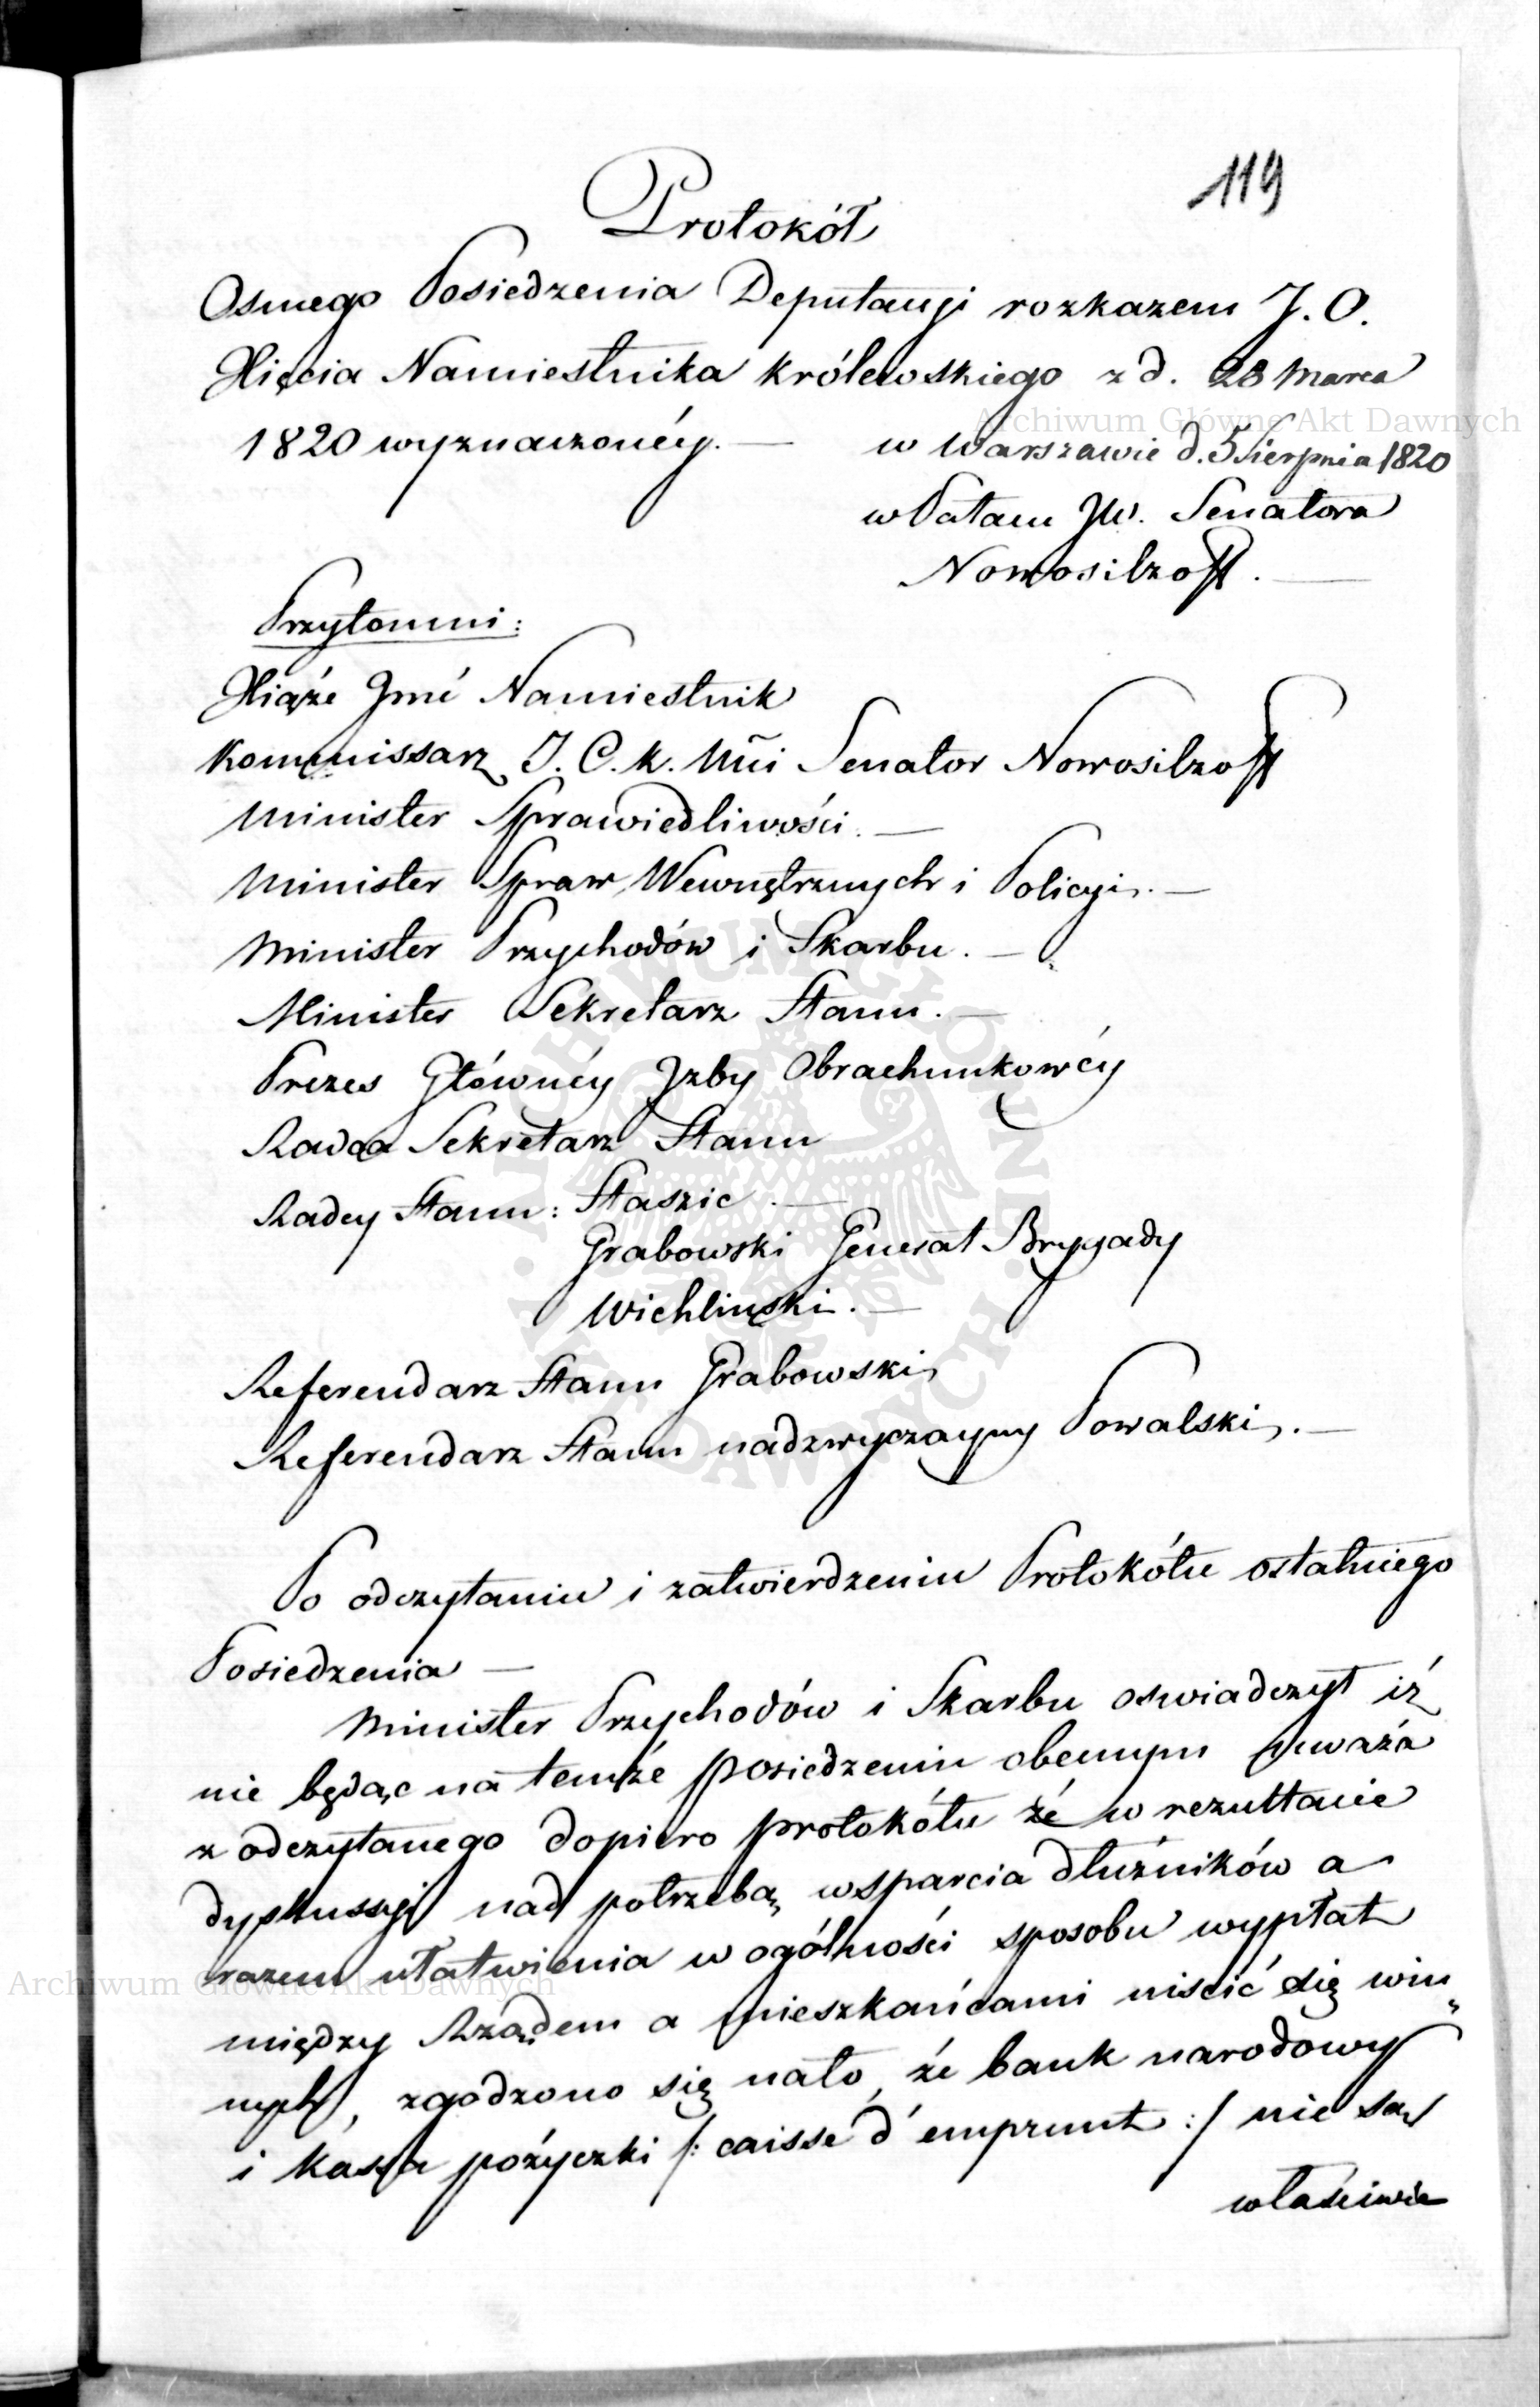 119
Protokół
Osmego Posiedzenia Deputacyi rozkazem J. O.
Xięcia Namiestnika królewskiego z d. 28 Marca
1820 wyznaczonéy. —
w Warszawie d. 5 Sierpnia 1820
w Pałacu JW. Senatora
Nowosilzoff. —
Przytomni:
Xiąże Jmć Namiestnik
Kommissarz J. C. K. Mći Senator Nowosilzoff
Minister Sprawiedliwości. —
Minister Spraw Wewnętrznych i Policyi. —
Minister Przychodów i Skarbu. —
Minister Sekretarz Stanu. —
Prezes Głównéy Jzby Obrachunkowéy
Radca Sekretarz Stanu
Radcy Stanu: Staszic. —
Grabowski Generał Brygady
Wichliński. —
Referendarz Stanu Grabowski
Referendarz Stanu nadzwyczayny Powalski. —
Po odczytaniu i zatwierdzeniu Protokółu ostatniego
Posiedzenia —
Minister Przychodów i Skarbu oswiadczył iż
nie będąc na temże posiedzeniu obecnym uważa
z odczytanego dopiero protokółu że w rezultacie
dyskussyi nad potrzebą wsparcia dłużników a
razem ułatwienia w ogólności sposobu wypłat
między Rządem a mieszkańcami uiścić się win„
nych, zgodzono się na to, że bank narodowy
i kassa pożyczki /: caisse d'emprunt :/ nie są
właściwie
Archiwum Główne Akt Dawnych
Archiwum Główne Akt Dawnych
ARCHIWUM GŁÓWNE AKT DAWNYCH